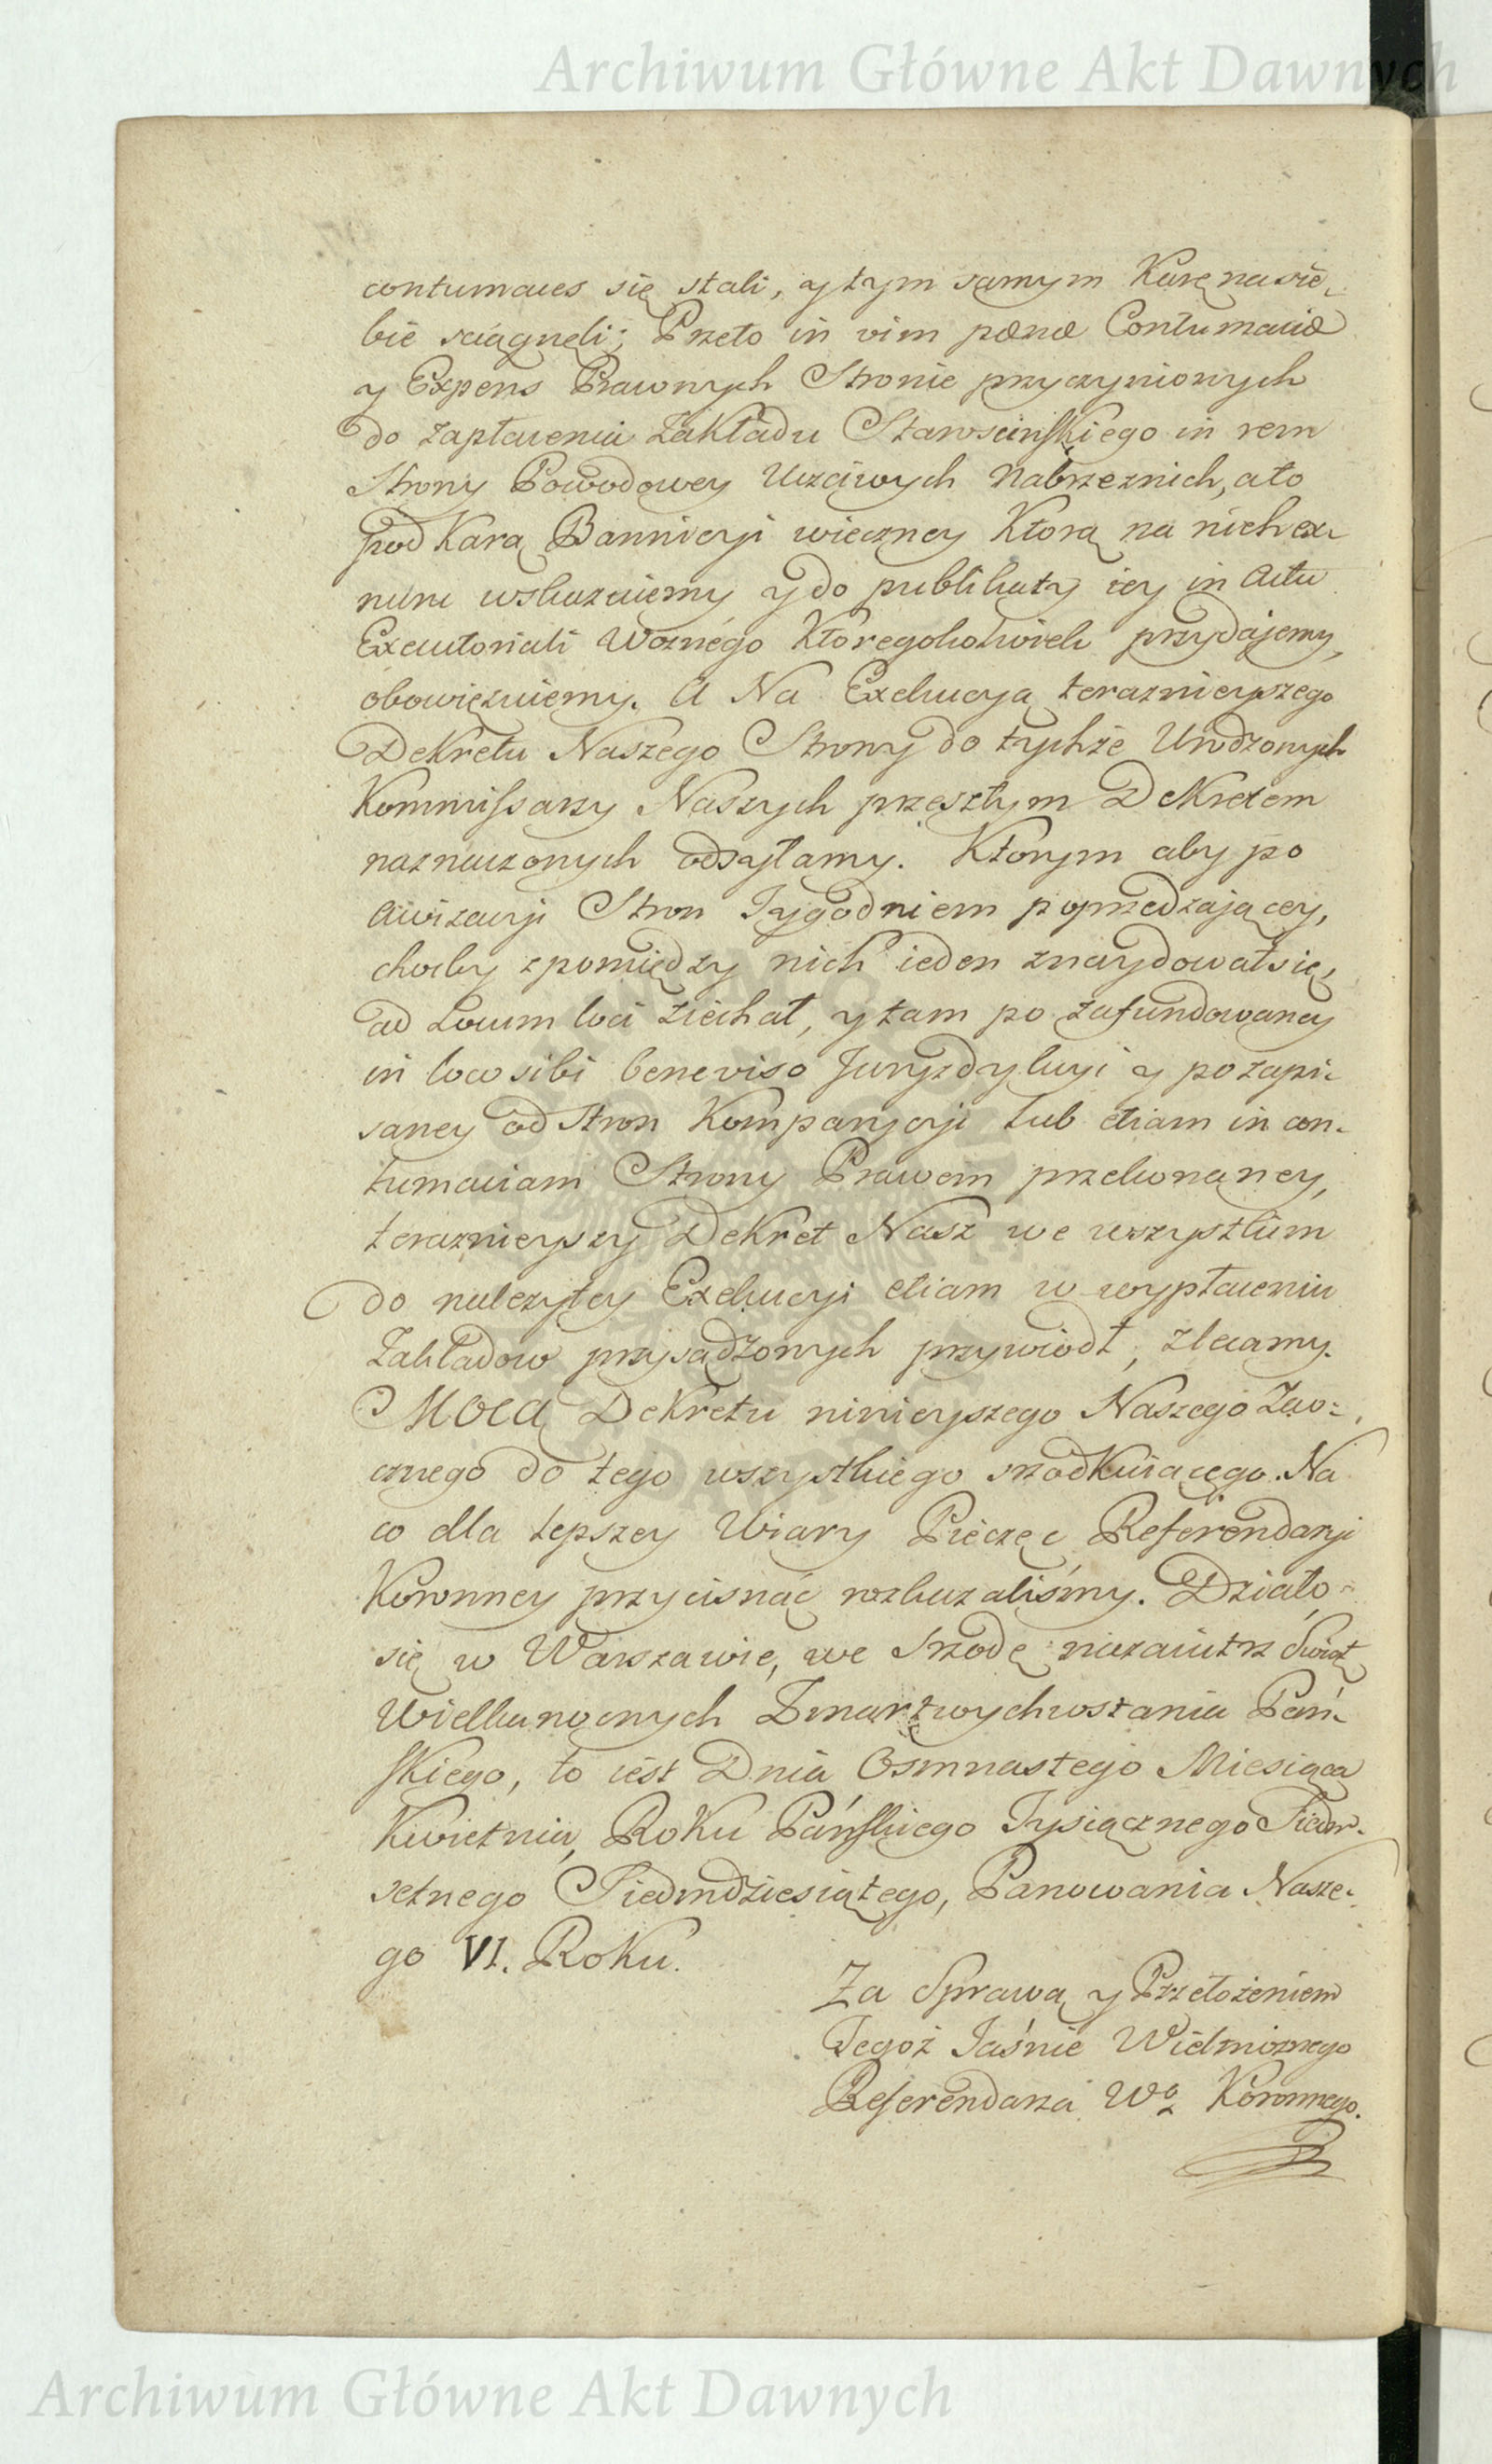 Archiwum Główne Akt Dawnych
contumaces się stali, y tym samym Karę na sie-
bie sciągneli; Przeto in vim pœnæ Contumaciæ
y Expens Prawnych Stronie przyczynionych
do zapłacenia Zakładu Starościńskiego in rem
Strony Powodowey Uczciwych Nabrzeznich, a to
pod Karą Bannicyi wieczney Ktorą na nich ex
nunc wskazuiemy y do publikaty iey in Actu
Executoriali Woznego Któregokolwiek przydajemy,
obowięzuiemy. A Na Exekucyą teraznieyszego
Dekretu Naszego Strony do tychże Urodzonych
Kommissarzy Naszych przeszłym Dekretem
naznaczonych odsyłamy. Ktorym aby po
awizacyi Stron Tygodniem poprzedzającey,
choćby z pomiędzy nich ieden znaydował się,
ad Locum loci ziechał, y tam po zafundowaney
in loco sibi beneviso Juryzdykcyi y po zapi-
saney od Stron Komparycyi lub etiam in con-
tumaciam Strony Prawem przekonaney,
teraznieyszy Dekret Nasz we wszystkim
do nalezytey Exekucyi etiam w wypłaceniu
Zakładow przysądzonych przywiodł, zlecamy.
Mocą Dekretu ninieyszego Naszego Zao-
cznego do tego wszystkiego srzodkuiącego. Na
co dla lepszey Wiary Pieczęc Referendaryi
Koronney przycisnąć rozkazaliśmy. Działo
się w Warszawie, we Srzodę nazaiutrz Swiąt
Wielkanocnych Zmartwychwstania Pań-
skiego, to iest Dnia Osmnastego Miesiąca
Kwietnia, Roku Pańskiego Tysiącznego Siedm-
setnego Siedmdziesiątego, Panowania Nasze-
go VI. Roku.
Za Sprawą y Przełożeniem
Tegoż Jaśnie Wielmożnego
Referendarza Wo Koronnego.
Archiwum Główne Akt Dawnych